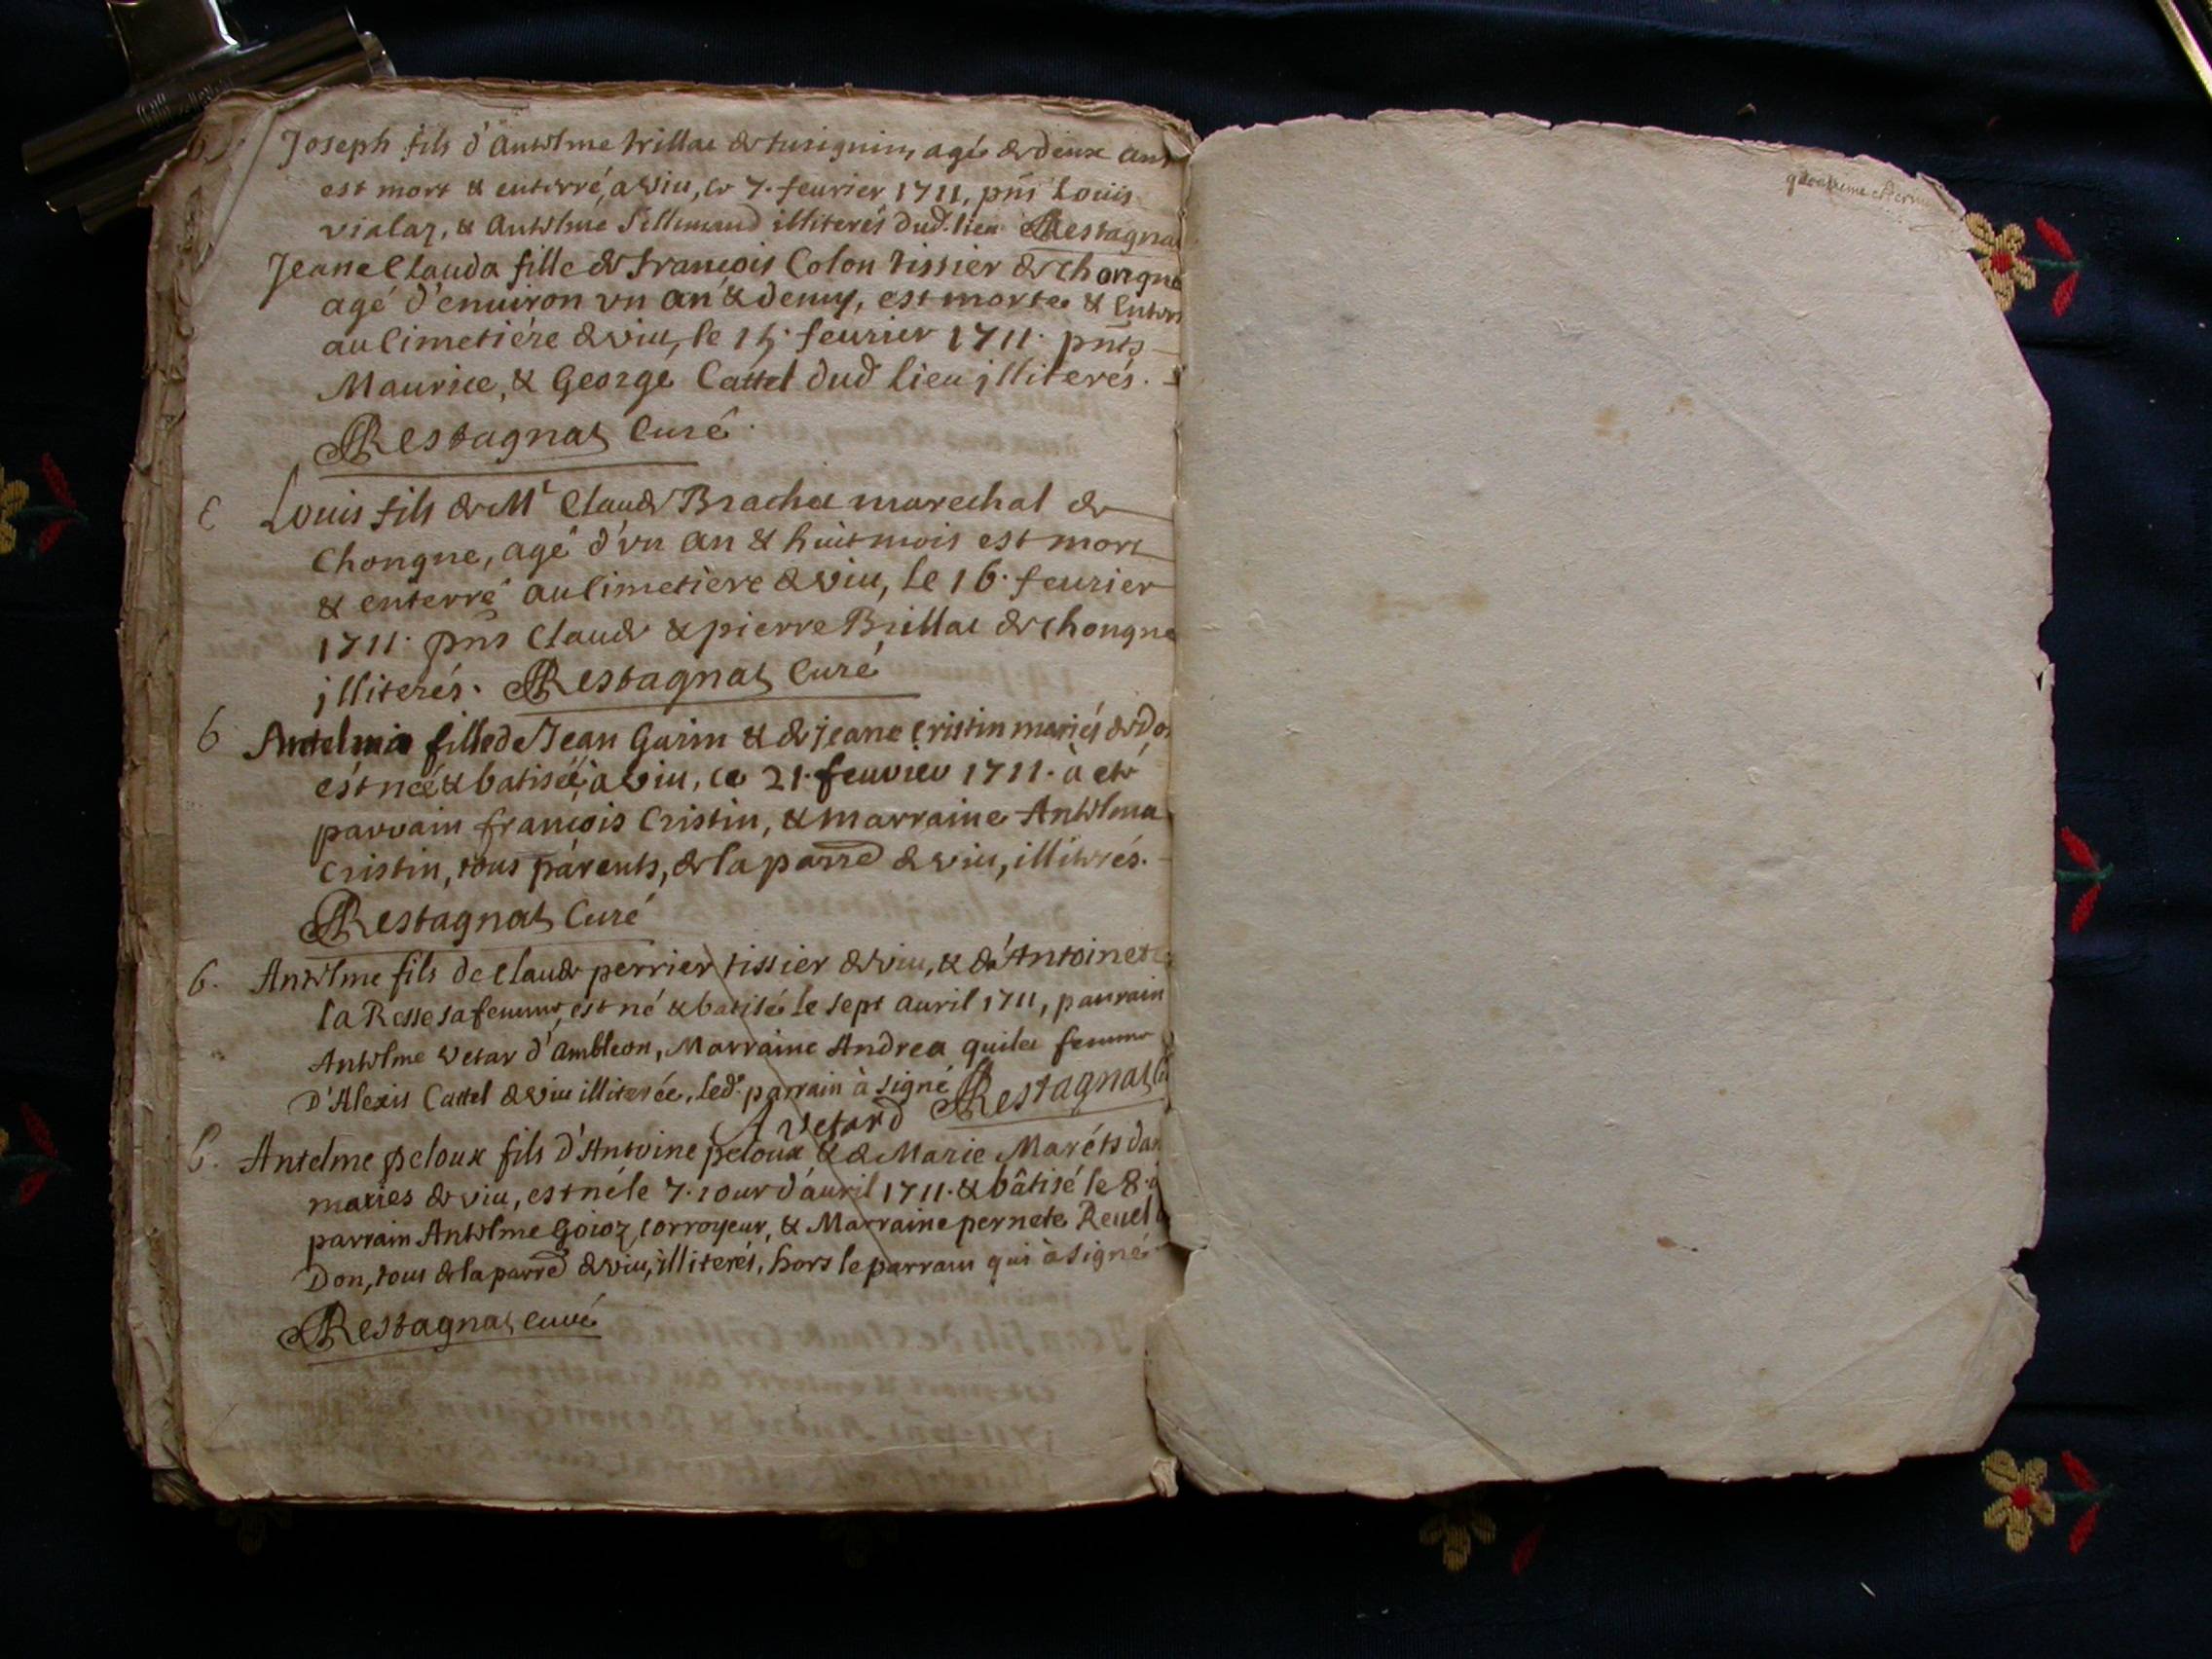 Joseph fils d'Antelme brillat de lusignin, agé de deux ans
est mort & enterré, a viu, le 7. feurier 1711, pñs Louis
vialaz, & Antelme Sillimand illiterés dud. lieu Restagnat
Jeane Clauda fille de françois Colon tissier de Chongne
agé d'enuiron vn an & demy, est morte & Enter
au Cimetiére de viu, le 15. feurier 1711. pñts
Maurice, & George Cattel dud lieu illiterés.
Restagnat Curé.
Louis fils de Mr Claude Brachet marechal de
Chongne, agé d'vn an & huit mois est mort
& enterré au Cimetiere de viu, le 16. feurier
1711. pñs Claude & pierre Brillat de Chongne
illiterés. Restagnat Curé
b Antelmia fille de Jean Garin & de jeane Cristin mariés de Don
est née & batisée, a viu, ce 21. feurier 1711. à eté
parrain françois Cristin, & marraine Antelma
Cristin, tous parents, de la parre de viu, illiterés.
Restagnat Curé
b. Antelme fils de Claude perrier tissier de viu, & de Antoinete
la Resse sa femme, est né & batisé le sept auril 1711, parrain
Antelme vetar d'Ambleon, Marraine Andrea quilet femme
D'Alexis Cattel de viu illiterée, led. parrain à signé Restagnat
A vetard
b. Antelme peloux fils d'Antoine peloux & de Marie Maréts
mariés de viu, est né le 7. iour d'auril 1711. & bâtisé le 8.
parrain Antelme Goioz, corroyeur, & Marraine pernete Reuel
Don, tous de la parre de viu, illiterés, hors le parrain qui à signé
Restagnat curé